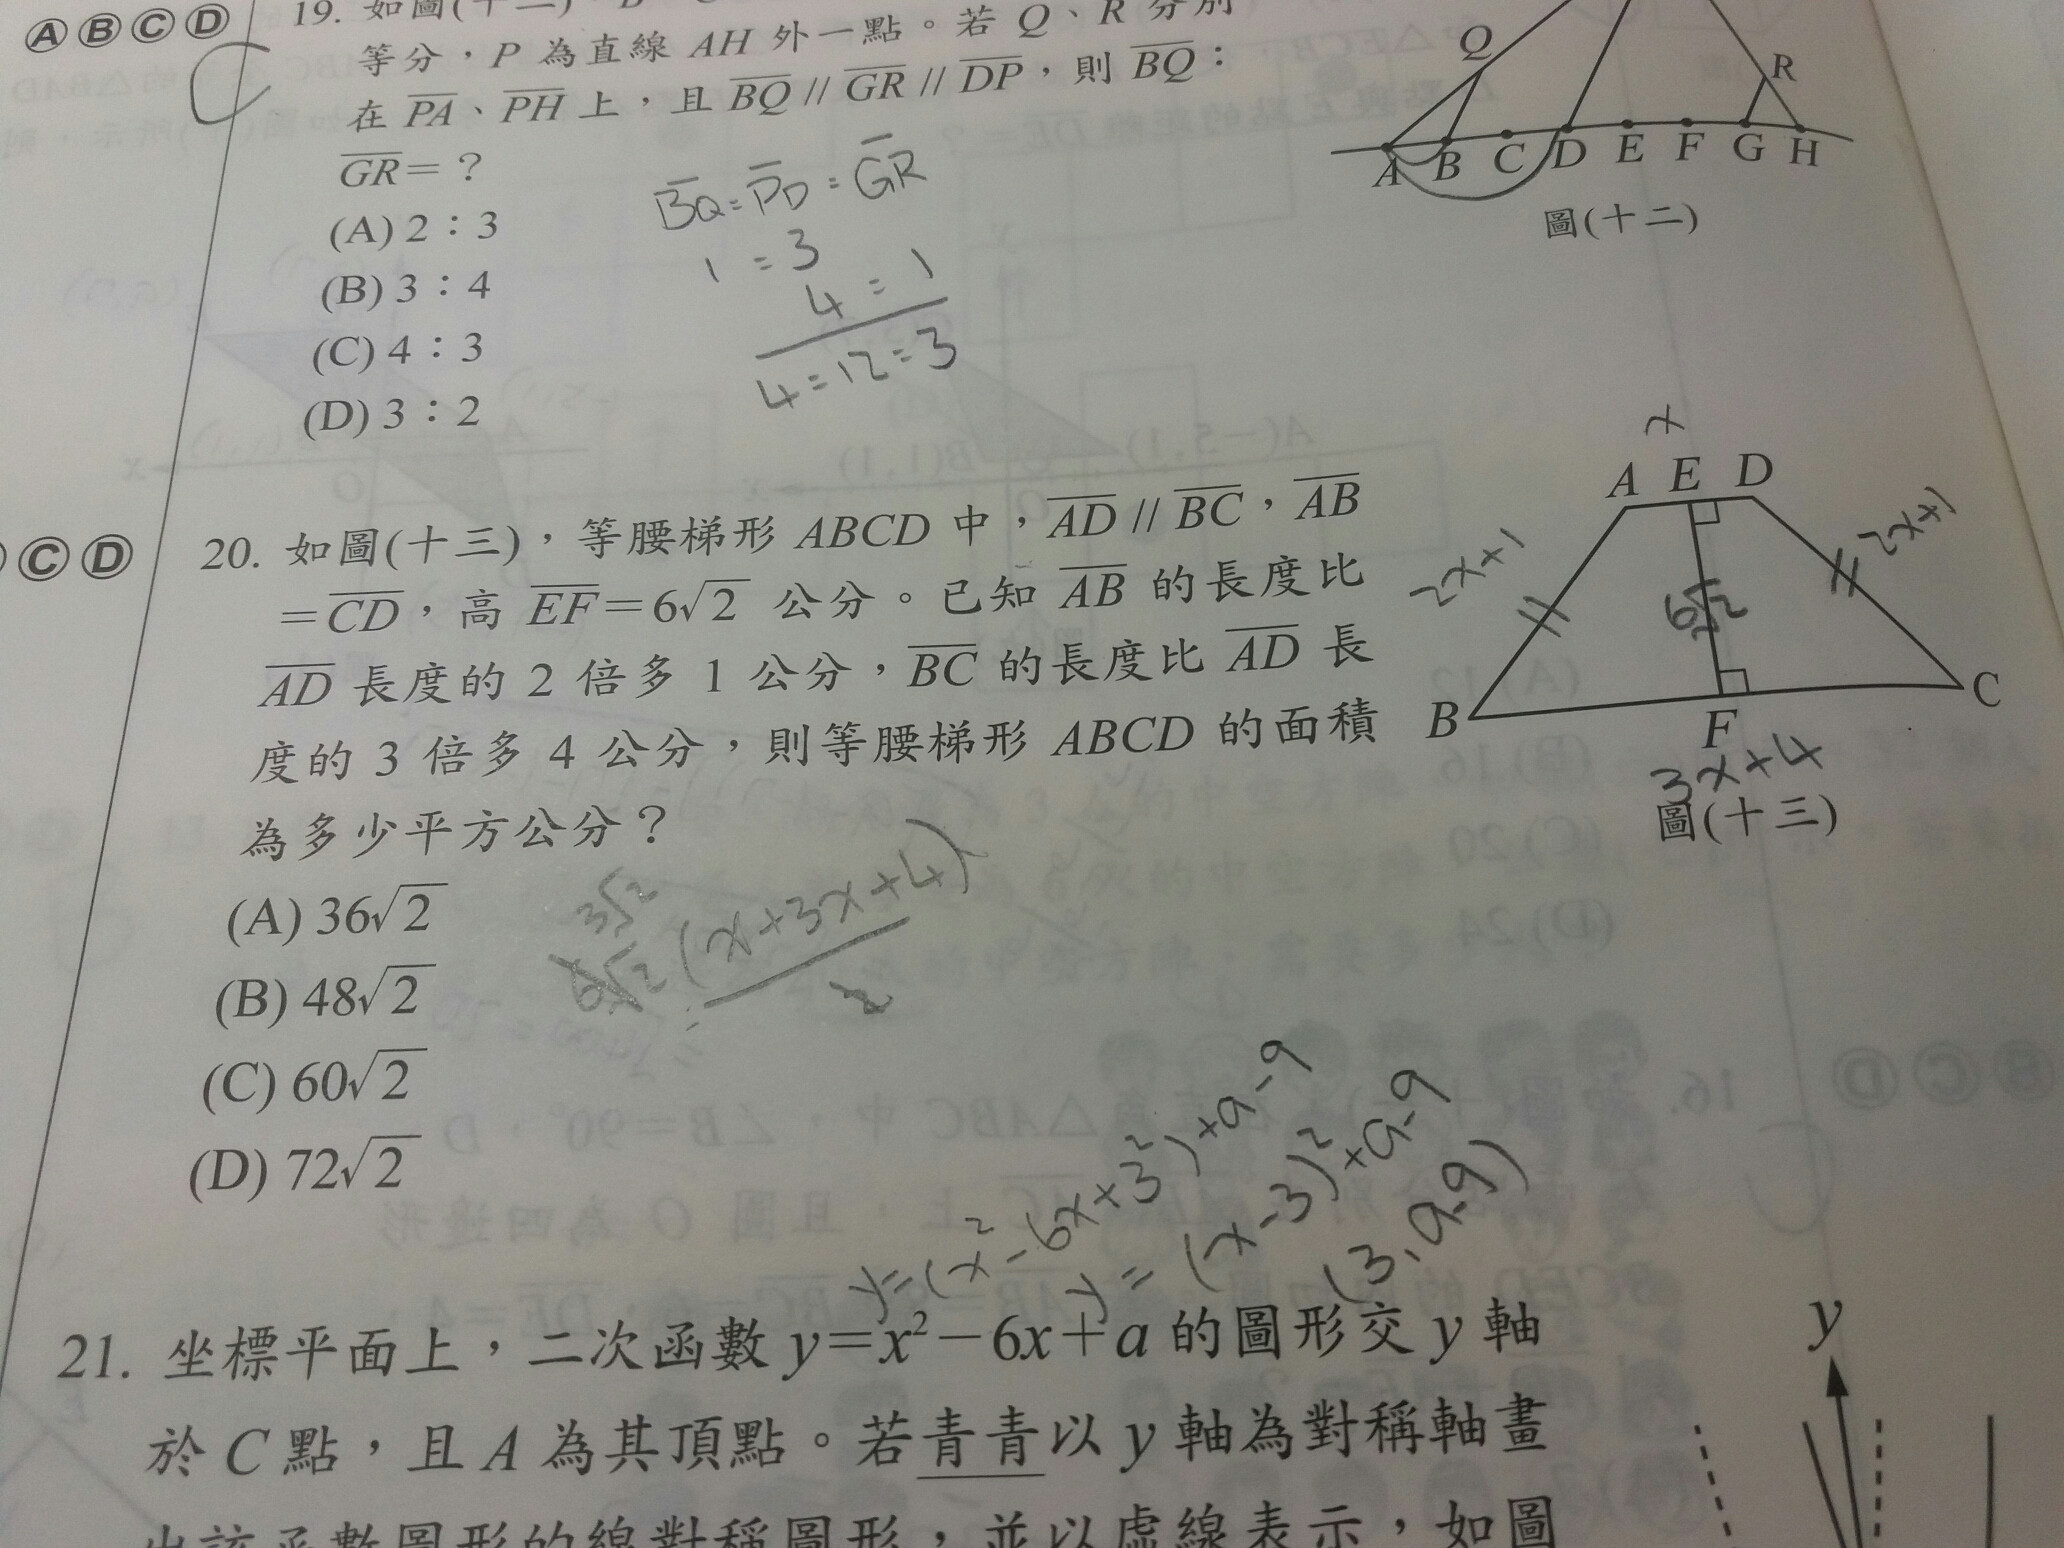 ⒶⒷⒸⒹ
C
19. 如圖(十二)
等分，P 為直線 AH 外一點。若 Q、R 分別
在 PA、PH 上，且 BQ // GR // DP，則 BQ：
GR＝？
(A) 2：3
(B) 3：4
(C) 4：3
(D) 3：2
BQ : PD : GR
1 : 3
4 : 1
4 : 12 : 3
Q
R
A B C D E F G H
圖(十二)
ⒸⒹ
20. 如圖(十三)，等腰梯形 ABCD 中，AD // BC，AB
＝CD，高 EF＝6√2 公分。已知 AB 的長度比
AD 長度的 2 倍多 1 公分，BC 的長度比 AD 長
度的 3 倍多 4 公分，則等腰梯形 ABCD 的面積
為多少平方公分？
(A) 36√2
(B) 48√2
(C) 60√2
(D) 72√2
x
A E D
2x+1
2x+1
6√2
B
F
C
3x+4
圖(十三)
3√2
6√2 (x+3x+4)
2
y=(x²-6x+3²)+a-9
y=(x-3)²+a-9
(3、a-9)
21. 坐標平面上，二次函數 y＝x²－6x＋a 的圖形交 y 軸
於 C 點，且 A 為其頂點。若青青以 y 軸為對稱軸畫
出該函數圖形的線對稱圖形，並以虛線表示，如圖
y